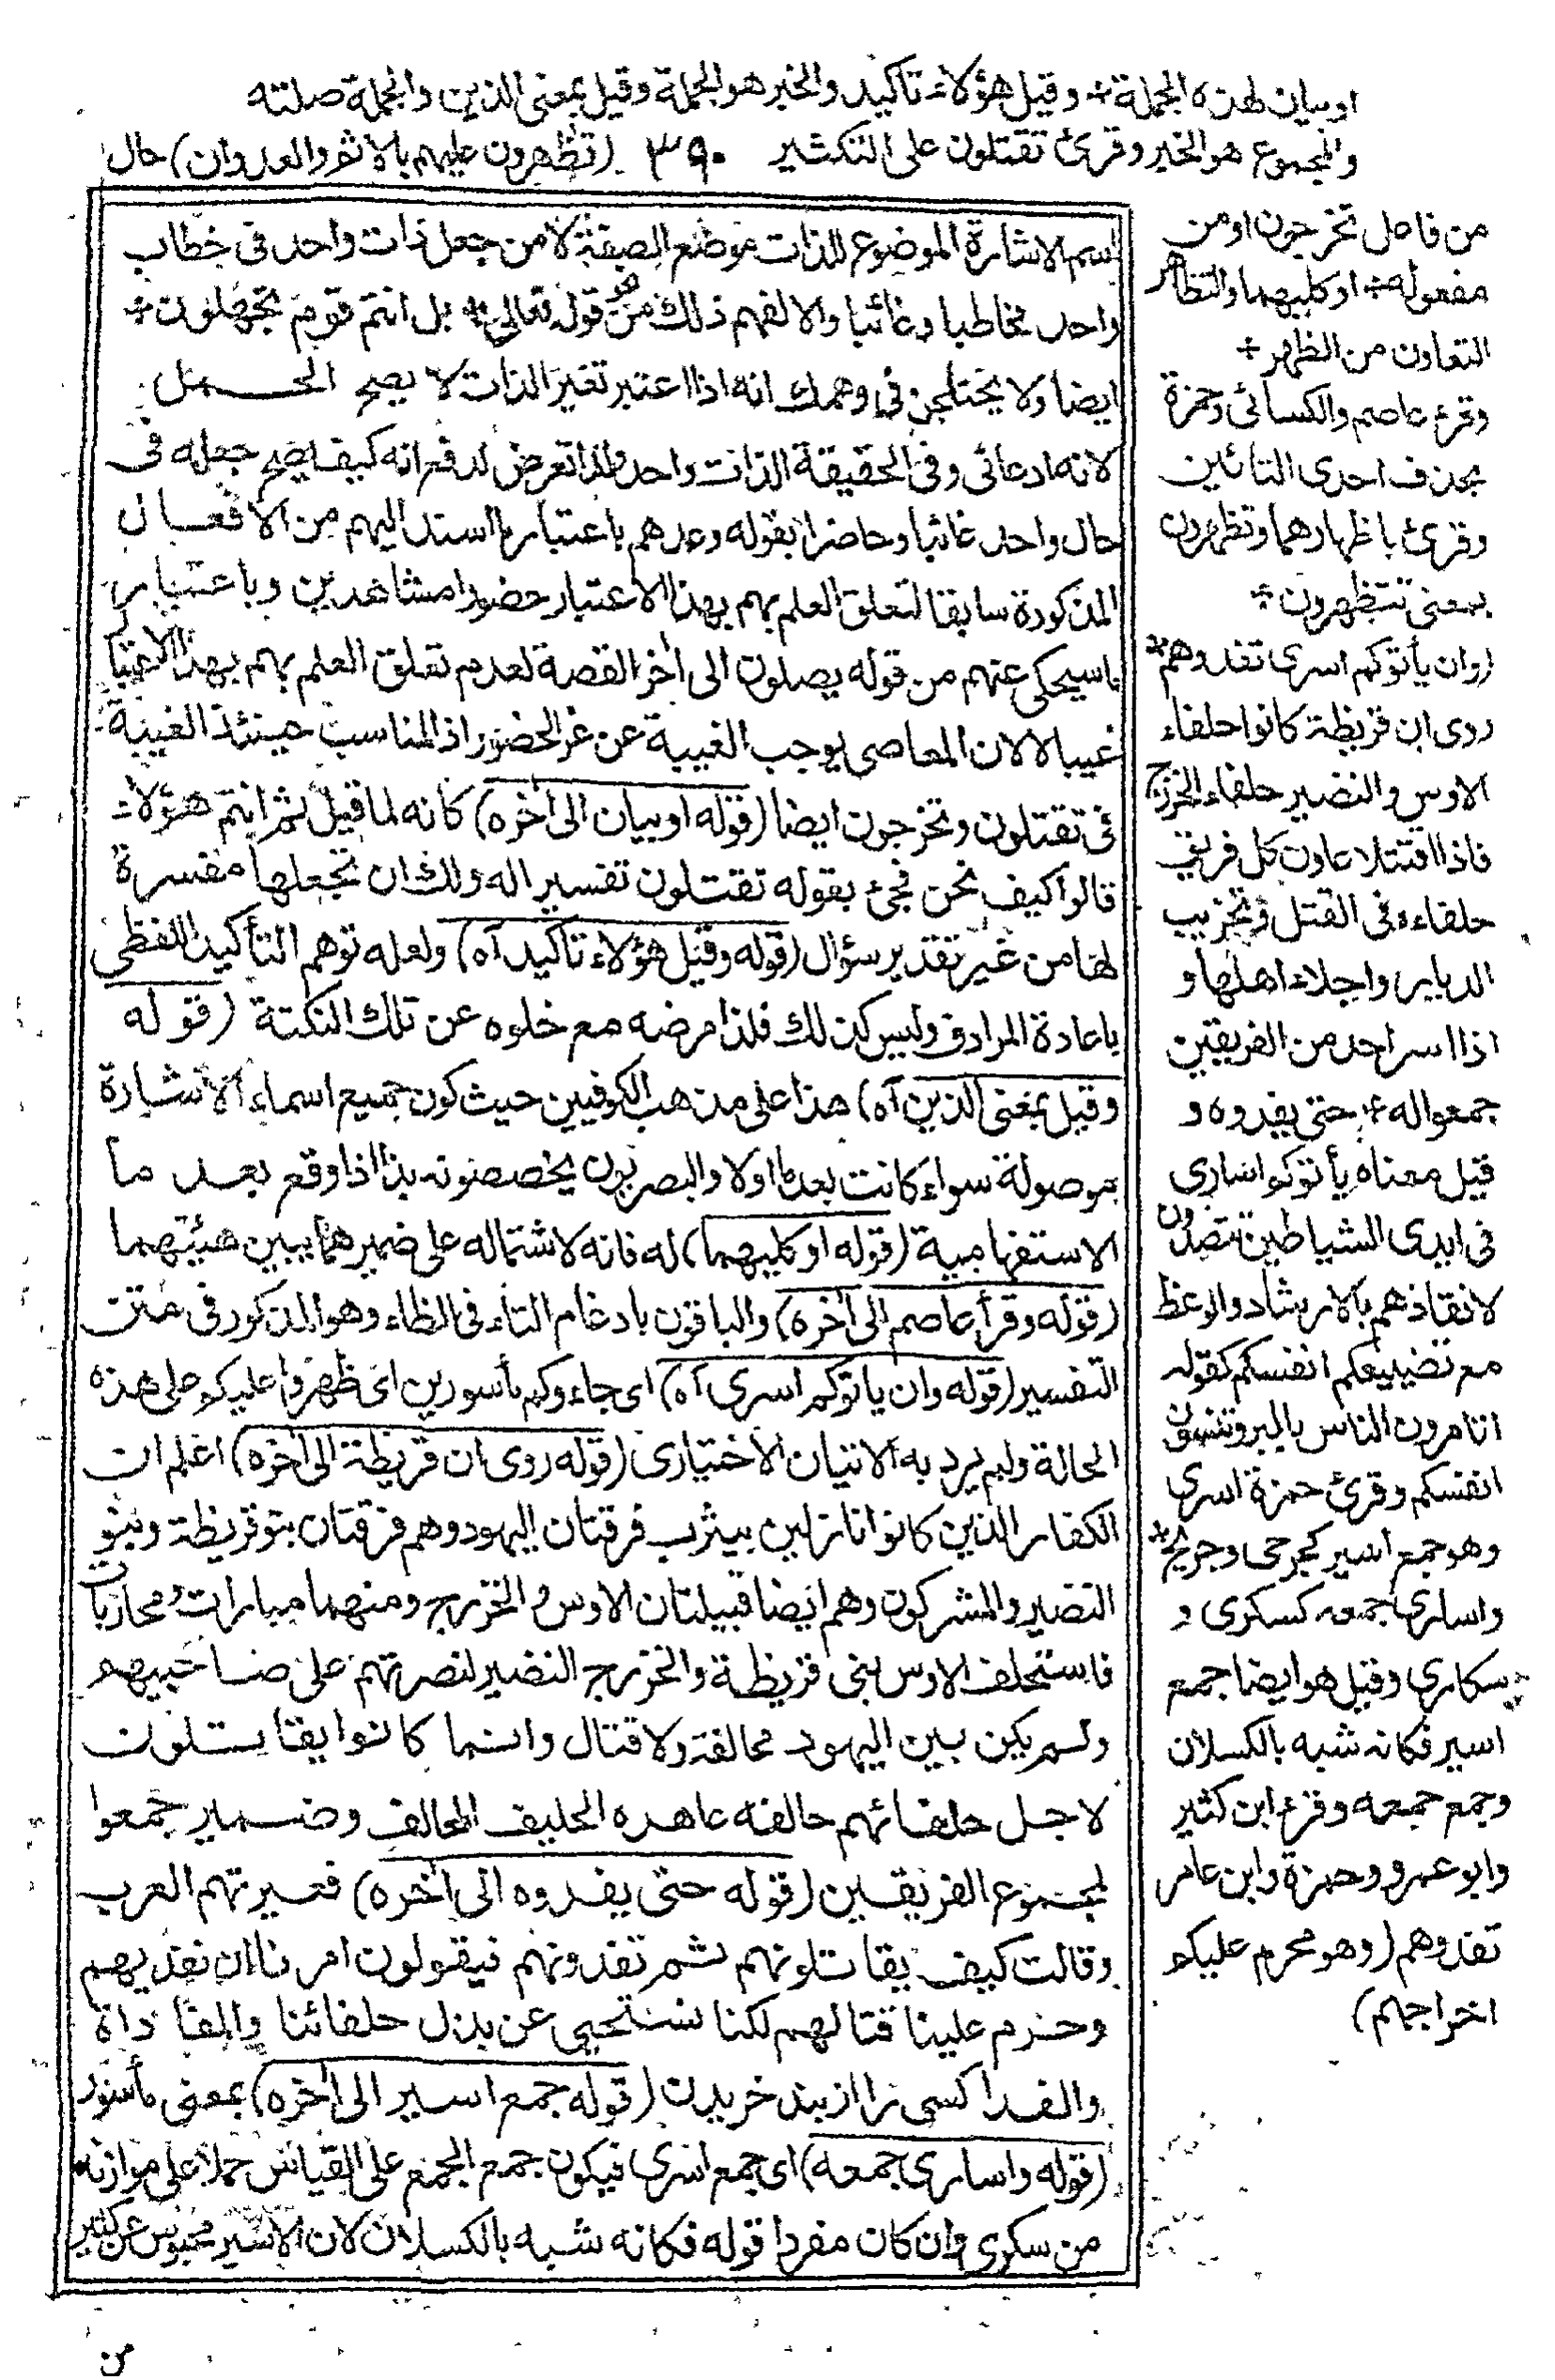 او بيان لهذه الجملة * وقيل هؤلاء تأكيد والخبر هو الجملة وقيل بمعنى الذين والجملة صلته
والمجموع هو الخبر وقرئ تقتلون على التكثير ٣٩٠ (تظهرون عليهم بالاثم والعدوان) حال
من فاعل تخرجون او من
مفعوله * او كليهما والتظاهر
التعاون من الظهر *
وقرء عاصم والكسائى وحمزة
بحذف احدى التائين
وقرئ باظهارهما وتظهرون
بمعنى تتظهرون *
(وان يأتوكم اسرى تفدوهم *
روى ان قريظة كانوا حلفاء
الاوس والنضير حلفاء الخزرج
فاذا اقتتلا عاون كل فريق
حلفاءه فى القتل وتخريب
الديار واجلاء اهلها و
اذا اسر احد من الفريقين
جمعوا له * حتى يفدوه و
قيل معناه يأتوكم اسارى
فى ايدى الشياطين تتصدون
لانقاذهم بالارشاد والوعظ
مع تضييعكم انفسكم كقوله
اتامرون الناس بالبر وتنسون
انفسكم وقرئ حمزة اسرى
وهو جمع اسير كجرحى وجريح *
واسارى جمعه كسكرى و
سكارى وقيل هو ايضا جمع
اسير فكانه شبه بالكسلان
وجمع جمعه وقرء ابن كثير
وابو عمرو وحمزة وابن عامر
تفدوهم (وهو محرم عليكم
اخراجهم)
اسم الاشارة الموضوع للذات موضع الصفة لا من جعل ذات واحد فى خطاب
واحد مخاطبا وغائبا والا لفهم ذلك من نحو قوله تعالى * بل انتم قوم تجهلون *
ايضا ولا يختلجن فى وهمك انه اذا اعتبر تغير الذات لا يصح الحمل
لانه ادعائى وفى الحقيقة الذات واحد ولذا تعرض لدفع انه كيف يصح جعله فى
حال واحد غائبا وحاضرا بقوله وعدهم باعتبار ما اسند اليهم من الافعال
المذكورة سابقا لتعلق العلم بهم بهذا الاعتبار حضورا مشاهدين وباعتبار
ما سيحكى عنهم من قوله يصلون الى آخر القصة لعدم تعلق العلم بهم بهذا الاعتبار
غيبا لا لان المعاصى يوجب الغيبة عن عز الحضور اذ المناسب حينئذ الغيبة
فى تقتلون وتخرجون ايضا (قوله او بيان الى آخره) كانه لما قيل ثم انتم هؤلاء
قالوا كيف نحن فجئ بقوله تقتلون تفسيرا له ولك ان تجعلها مفسرة
لها من غير تقدير سؤال (قوله وقيل هؤلاء تأكيد آه) ولعله توهم التأكيد اللفظى
باعادة المرادف وليس كذلك فلذا مرضه مع خلوه عن تلك النكتة (قوله
وقيل بمعنى الذين آه) هذا على مذهب الكوفيين حيث كون جميع اسماء الاشارة
موصولة سواء كانت بعد ما اولا والبصريون يخصصونه بذا اذا وقع بعد ما
الاستفهامية (قوله او كليهما) له فانه لاشتماله على ضميرهما يبين هيئتهما
(قوله وقرأ عاصم الى آخره) والباقون بادغام التاء فى الظاء وهو المذكور فى متن
التفسير (قوله وان ياتوكم اسرى آه) اى جاءوكم مأسورين اى ظهروا عليكم على هذه
الحالة ولم يرد به الاتيان الاختيارى (قوله روى ان قريظة الى آخره) اعلم ان
الكفار الذين كانوا نازلين بيثرب فرقتان اليهود وهم فرقتان بنو قريظة وبنو
النضير والمشركون وهم ايضا قبيلتان الاوس والخزرج ومنهما مبارات ومحاربات
فاستحلف الاوس بنى قريظة والخزرج النضير لنصرتهم على صاحبيهم
ولم يكن بين اليهود مخالفة ولا قتال وانما كانوا يقاتلون
لاجل حلفائهم حالفه عاهده الحليف المحالف وضمير جمعوا
لمجموع الفريقين (قوله حتى يفدوه الى آخره) فعيرتهم العرب
وقالت كيف يقاتلونهم ثم تفدونهم فيقولون امرنا ان نفديهم
وحرم علينا قتالهم لكنا نستحيى عن بذل حلفائنا والمفاداة
والفدا كسى را از بند خريدن (قوله جمع اسير الى آخره) بمعنى مأسور
(قوله واسارى جمعه) اى جمع اسرى فيكون جمع الجمع على القياس حملا على موازنه
من سكرى وان كان مفردا قوله فكانه شبه بالكسلان لان الاسير محبوس عن كثير
من